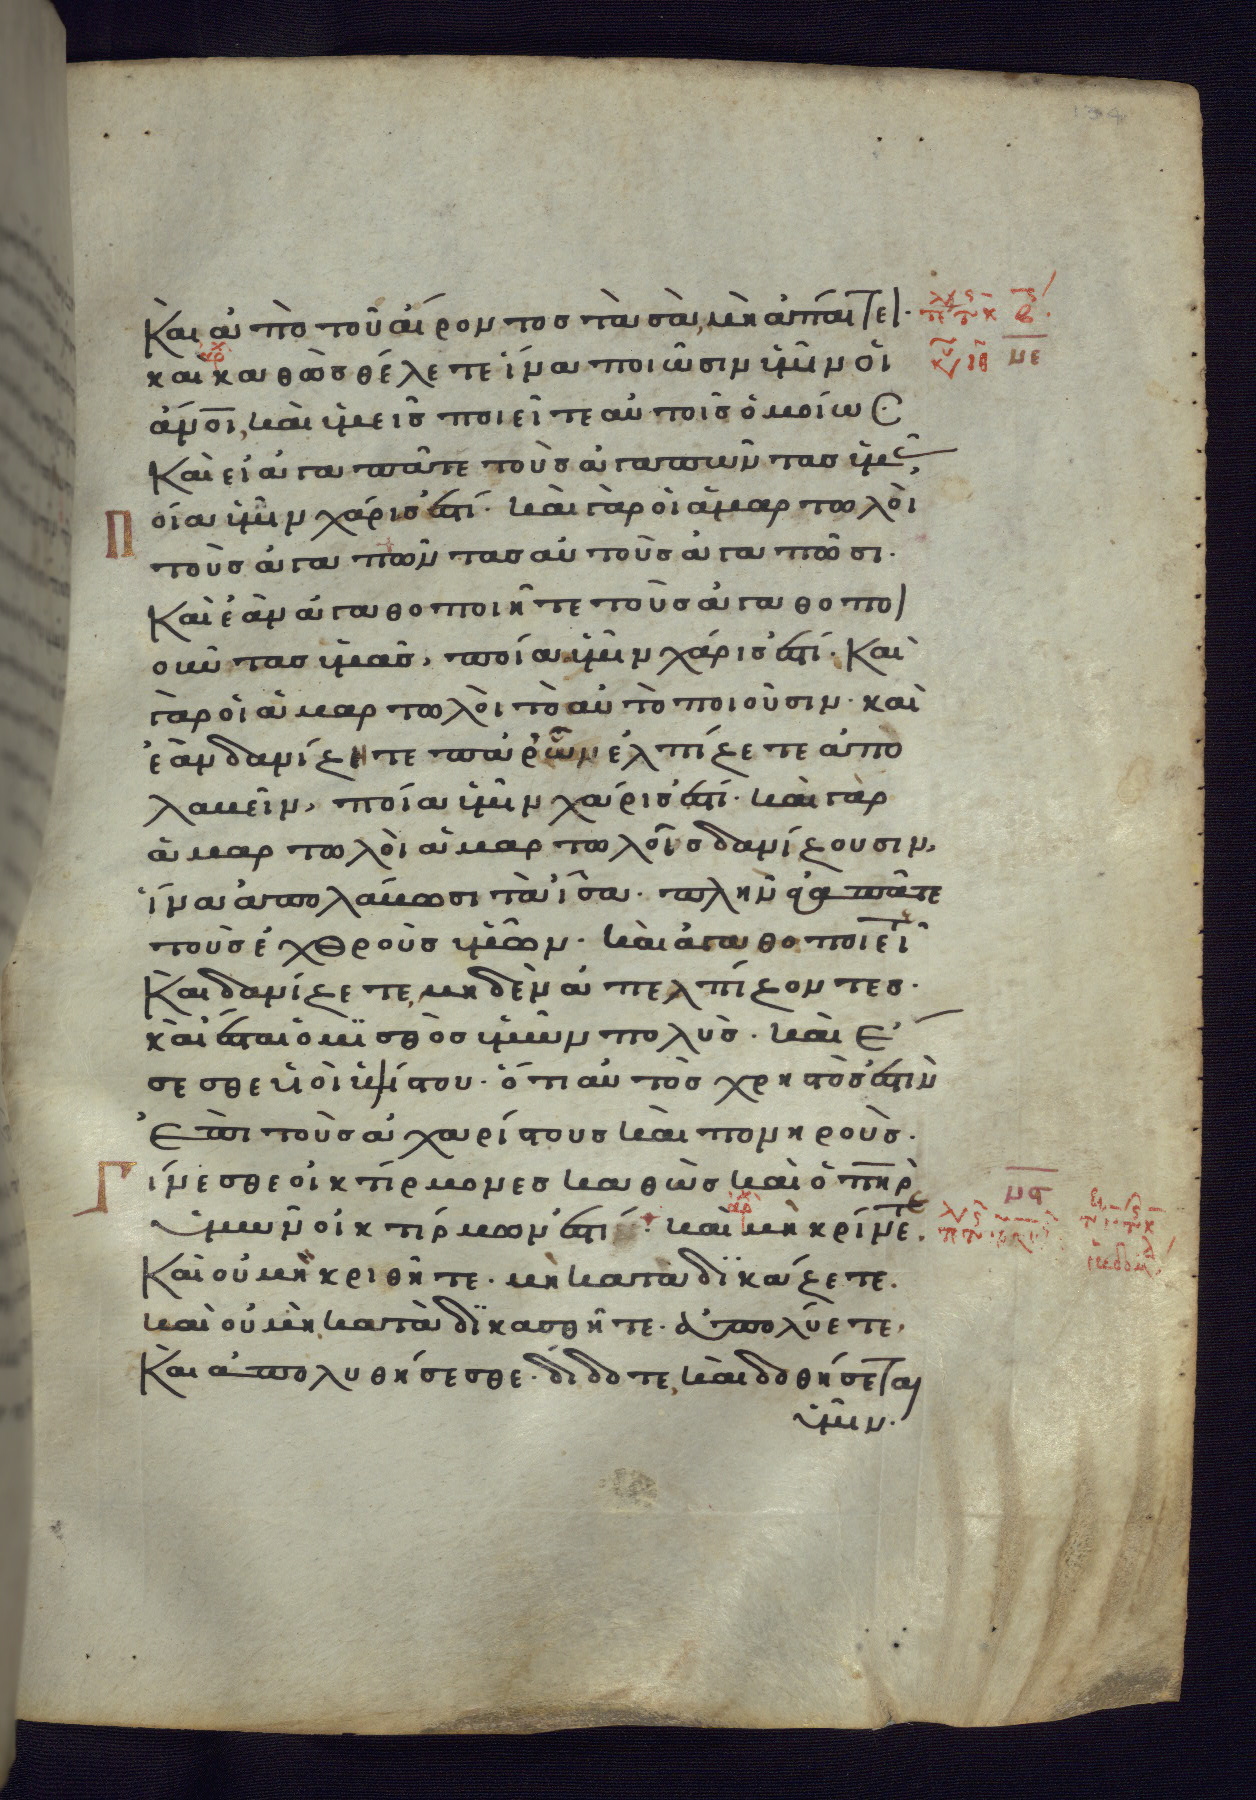 Καὶ ἀπὸ τοῦ αἴροντος τὰ σὰ, μὴ ἀπαίτει·
καὶ καθὼς θέλετε ἵνα ποιῶσιν ὑμῖν οἱ
ἄνοι, καὶ ὑμεῖς ποιεῖτε αὐτοῖς ὁμοίως
Καὶ εἰ ἀγαπᾶτε τοὺς ἀγαπῶντας ὑμᾶς,
Ποία ὑμῖν χάρις ἐστί· καὶ γὰρ οἱ ἁμαρτωλοὶ
τοὺς ἀγαπῶντας αὐτοὺς ἀγαπῶσι·
Καὶ ἐὰν ἀγαθοποιῆτε τοὺς ἀγαθοποι
οῦντας ὑμᾶς, ποία ὑμῖν χάρις ἐστί· Καὶ
γὰρ οἱ ἁμαρτωλοὶ τὸ αὐτὸ ποιοῦσιν· καὶ
ἐὰν δανίζητε παρ' ὧν ἐλπίζετε ἀπο
λαβεῖν, ποία ὑμῖν χάρις ἐστί· καὶ γὰρ
ἁμαρτωλοὶ ἁμαρτωλοῖς δανίζουσιν,
ἵνα ἀπολάβωσι τὰ ἴσα· πλὴν ἀγαπᾶτε
τοὺς ἐχθροὺς ὑμῶν· καὶ ἀγαθοποιεῖτε
Καὶ δανίζετε, μηδὲν ἀπελπίζοντες·
καὶ ἔσται ὁ μισθὸς ὑμῶν πολὺς· καὶ ἔ
σεσθε υἱοὶ ὑψίστου· ὅτι αὐτὸς χρηστὸς ἐστὶν
Ἐπὶ τοὺς ἀχαρίστους καὶ πονηροὺς·
Γίνεσθε οἰκτίρμονες καθὼς καὶ ὁ πηρ
ὑμῶν οἰκτίρμων ἐστί· καὶ μὴ κρίνετε·
Καὶ οὐ μὴ κριθῆτε· μὴ καταδικάζετε·
καὶ οὐ μὴ καταδικασθῆτε· ἀπολύετε,
Καὶ ἀπολυθήσεσθε· δίδοτε, καὶ δοθήσεται
ὑμῖν·
με
μϛ